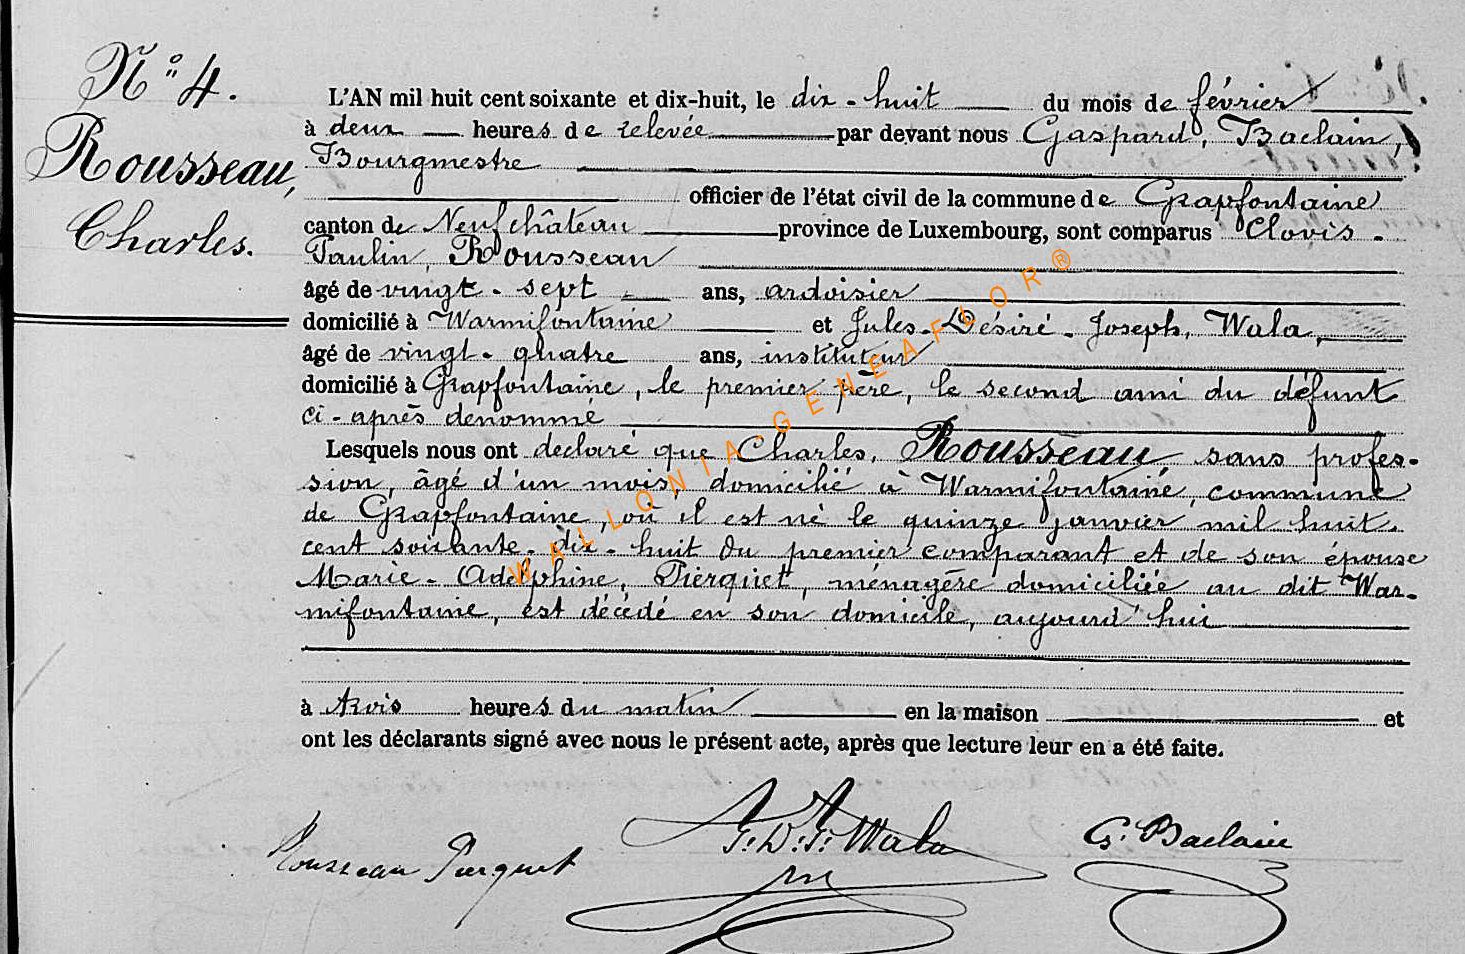 N° 4.
Rousseau,
Charles.
L'AN mil huit cent soixante et dix-huit, le dix-huit du mois de février
à deux heures de relevée par devant nous Gaspard, Baclain,
Bourgmestre
officier de l'état civil de la commune de Grapfontaine
canton de Neufchâteau province de Luxembourg, sont comparus Clovis-
Paulin, Rousseau
âgé de vingt-sept ans, ardoisier
domicilié à Warmifontaine et Jules-Désiré-Joseph, Wala,
âgé de vingt-quatre ans, instituteur
domicilié à Grapfontaine, le premier père, le second ami du défunt
ci-après denommé
Lesquels nous ont declaré que Charles, Rousseau, sans profes-
sion, âgé d'un mois, domicilié à Warmifontaine, commune
de Grapfontaine, où il est né le quinze janvier mil huit-
cent soixante-dix-huit du premier comparant et de son épouse
Marie-Adelphine, Pierquet, ménagère domiciliée au dit War-
mifontaine, est décédé en son domicile, aujourd'hui
à trois heures du matin en la maison et
ont les déclarants signé avec nous le présent acte, après que lecture leur en a été faite.
Rousseau Pierquet J. D. J. Wala G. Baclain
WALLONIA-GENEAFLOR®